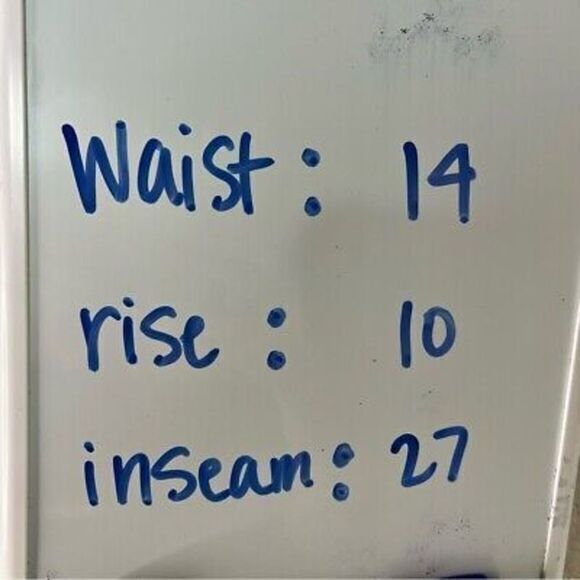 Waist: 14
rise: 10
inseam: 27